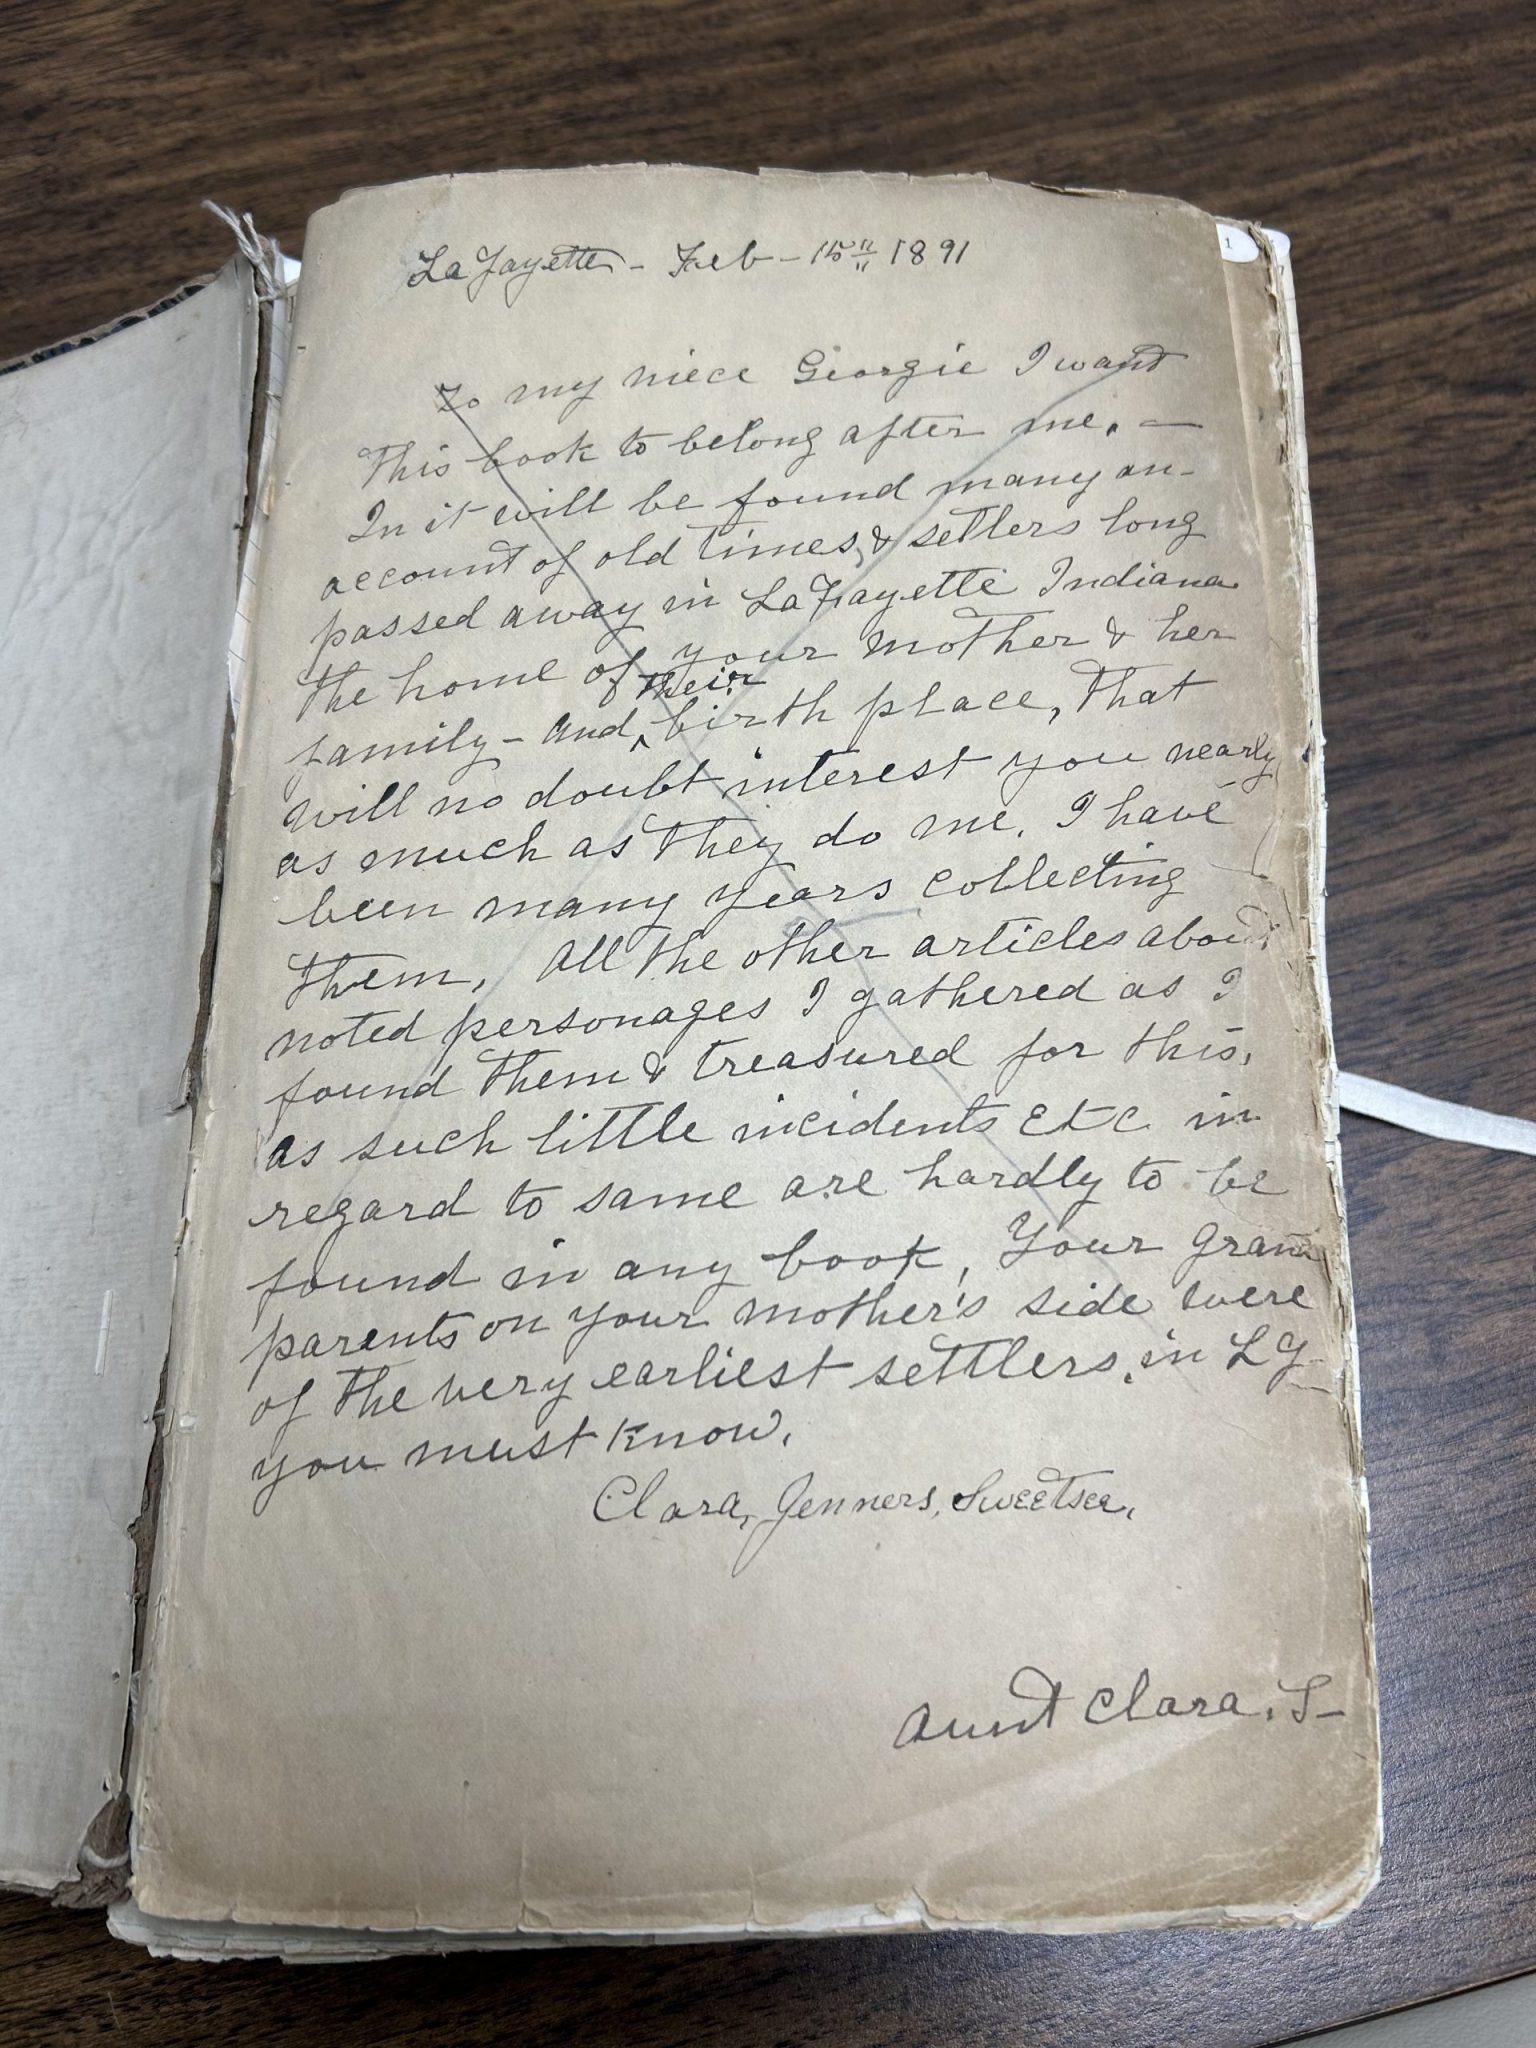 1
LaFayette - Feb - 15" 1891
To my niece Georgie I want
This book to belong after me. —
In it will be found many an-
account of old times, & settlers long
passed away in LaFayette Indiana
the home of your mother & her
their
family - and ^ birth place, That
will no doubt interest you nearly
as much as they do me. I have
been many years collecting
them. All the other articles about
noted personages I gathered as I
found them & treasured for this,
as such little incidents etc in
regard to same are hardly to be
found in any book, Your grand
parents on your mother's side were
of the very earliest settlers, in L F
you must know.
Clara, Jenners, Sweetser.
Aunt Clara. S-